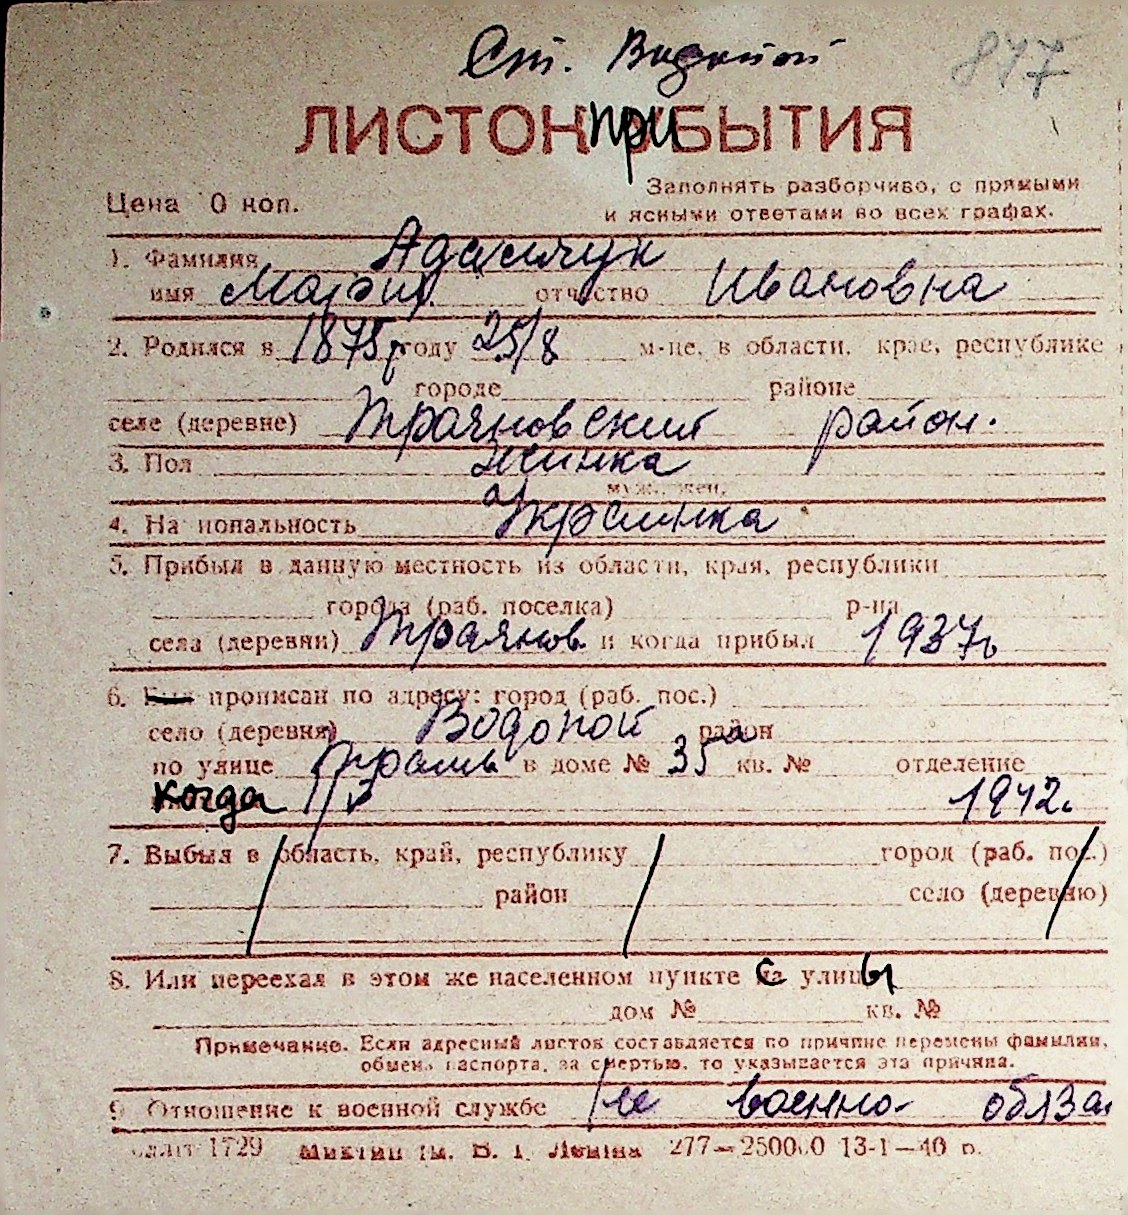 Ст. Водопой 847
ЛИСТОК ПРИБЫТИЯ
Заполнять разборчиво, с прямыми
Цена 0 коп. и ясными ответами во всех графах.
1. Фамилия Адамчук
имя Мария отчество Ивановна
2. Родился в 1875г году 25/8 м-це, в области, крае, республике
городе районе
селе (деревне) Трояновский район.
3. Пол жинка
муж., жен.
4. На иональность Украинка
5. Прибыл в данную местность из области, края, республики
города (раб. поселка) р-на
села (деревни) Троянов. и когда прибыл 1937г
6. прописан по адресу: город (раб. пос.)
село (деревня) Водопой район
по улице в доме № 35а кв. № отделение
когда 1942.
7. Выбыл в область, край, республику город (раб. пос.)
район село (деревню)
8. Или переехал в этом же населенном пункте с улицы
дом № кв. №
Примечание. Если адресный листок составляется по причине перемены фамилии,
обмена паспорта, за смертью, то указывается эта причина.
9 Отношение к военной службе не военно- обяза.
1729 им. В. І. Леніна 277—25000 0 13-1—40 р.